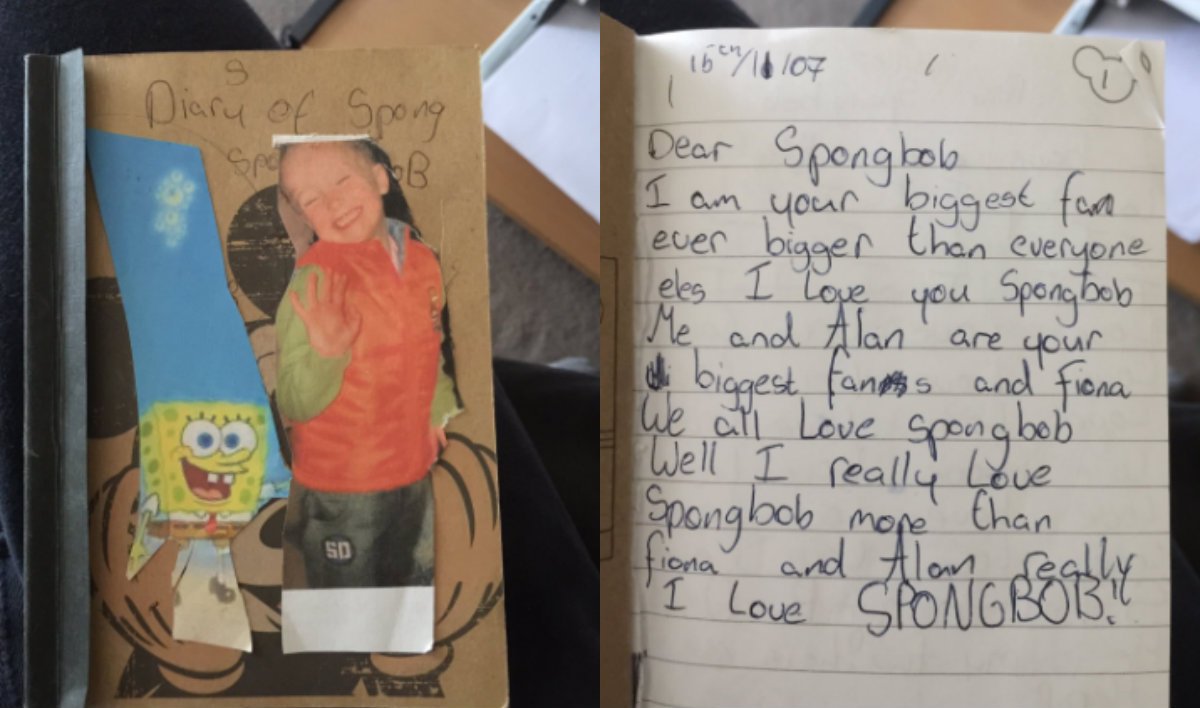 S
Diary of Spong
oB
SD
16th/11/07
1
Dear Spongbob
I am your biggest fan
ever bigger than everyone
eles I Love you Spongbob
Me and Alan are your
biggest fans and fiona
We all Love spongbob
Well I really Love
Spongbob more than
fiona and Alan really
I Love SPONGBOB!!